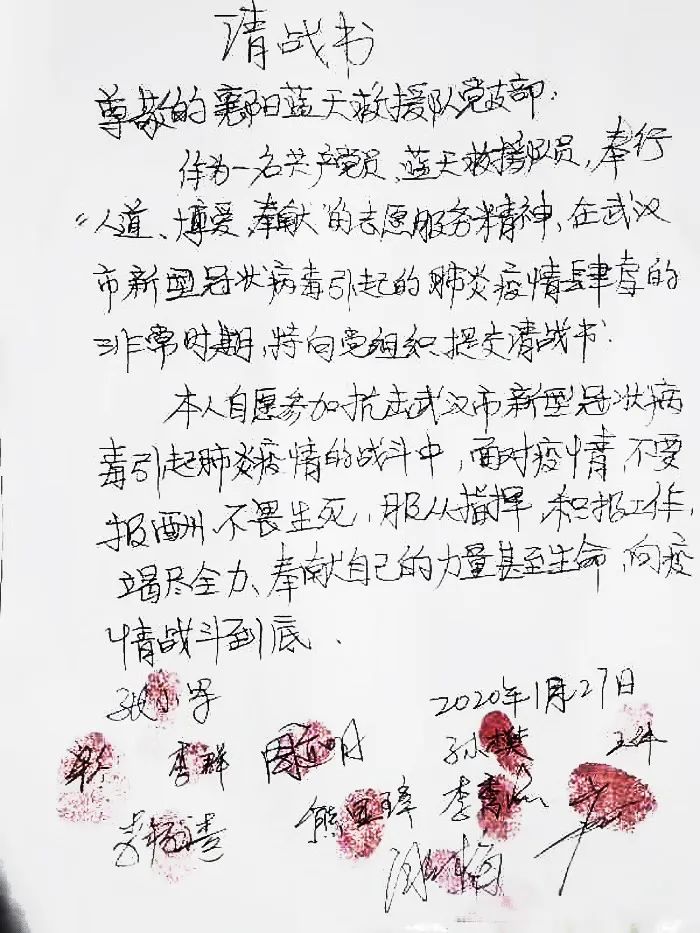 请战书
尊敬的襄阳蓝天救援队党支部：
作为一名共产党员、蓝天救援队员，奉行
“人道、博爱、奉献”的志愿服务精神，在武汉
市新型冠状病毒引起的肺炎疫情肆虐的
非常时期，特向党组织提交请战书.
本人自愿参加抗击武汉市新型冠状病
毒引起肺炎疫情的战斗中，面对疫情，不要
报酬，不畏生死，服从指挥，积极工作，
竭尽全力、奉献自己的力量甚至生命，向疫
情战斗到底.
张小军 2020年1月27日
李群